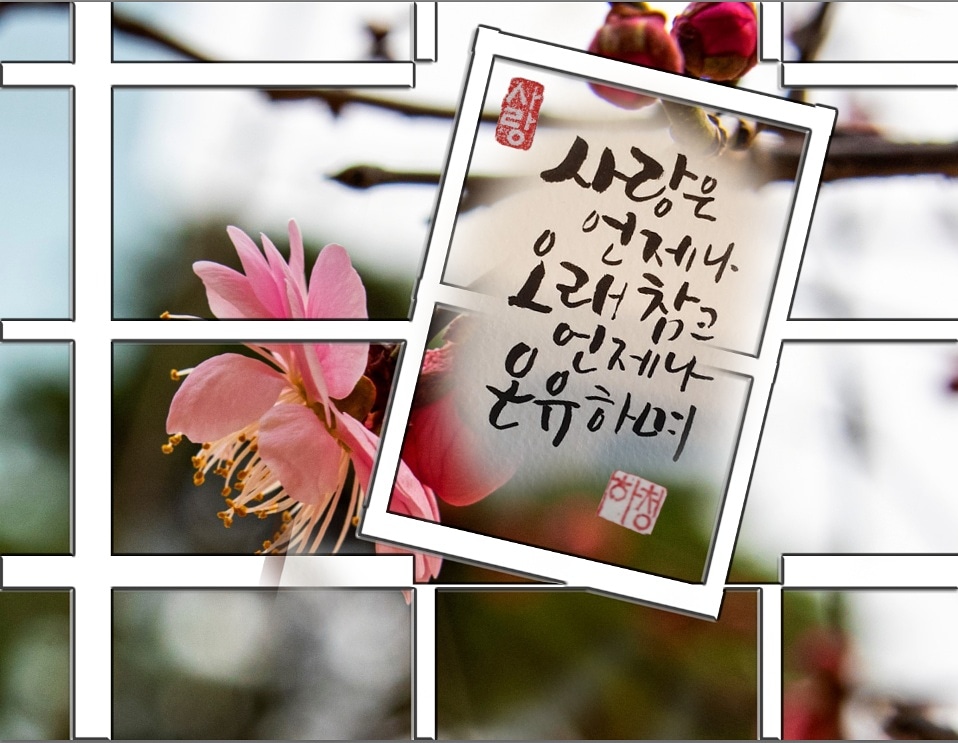 사랑
사랑은
언제나
오래 참고
언제나
온유하며
하청